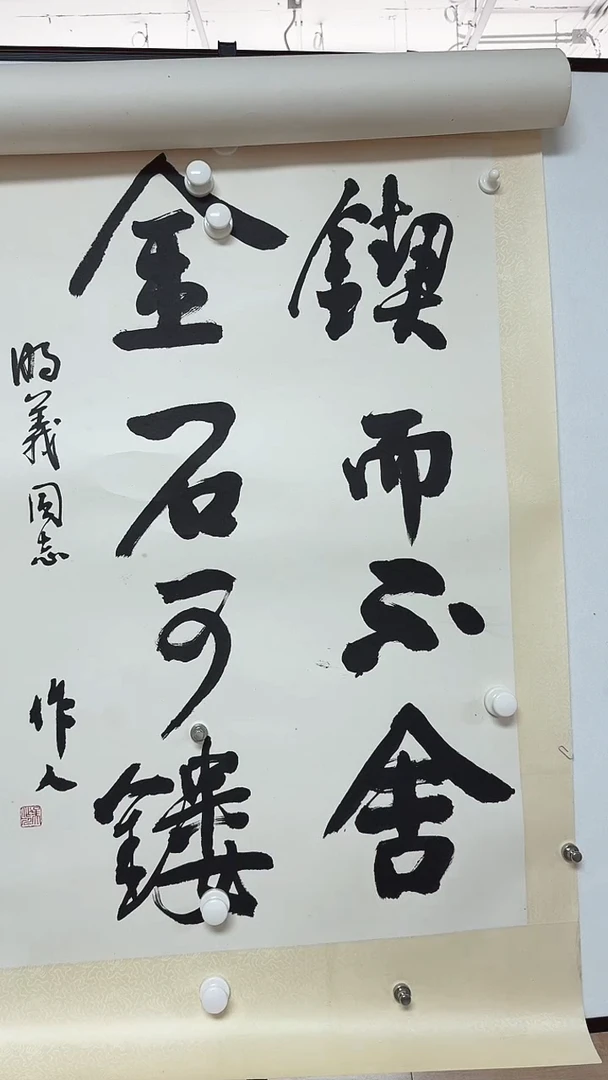 鍥而不舍
金石可鏤
明義同志
作人